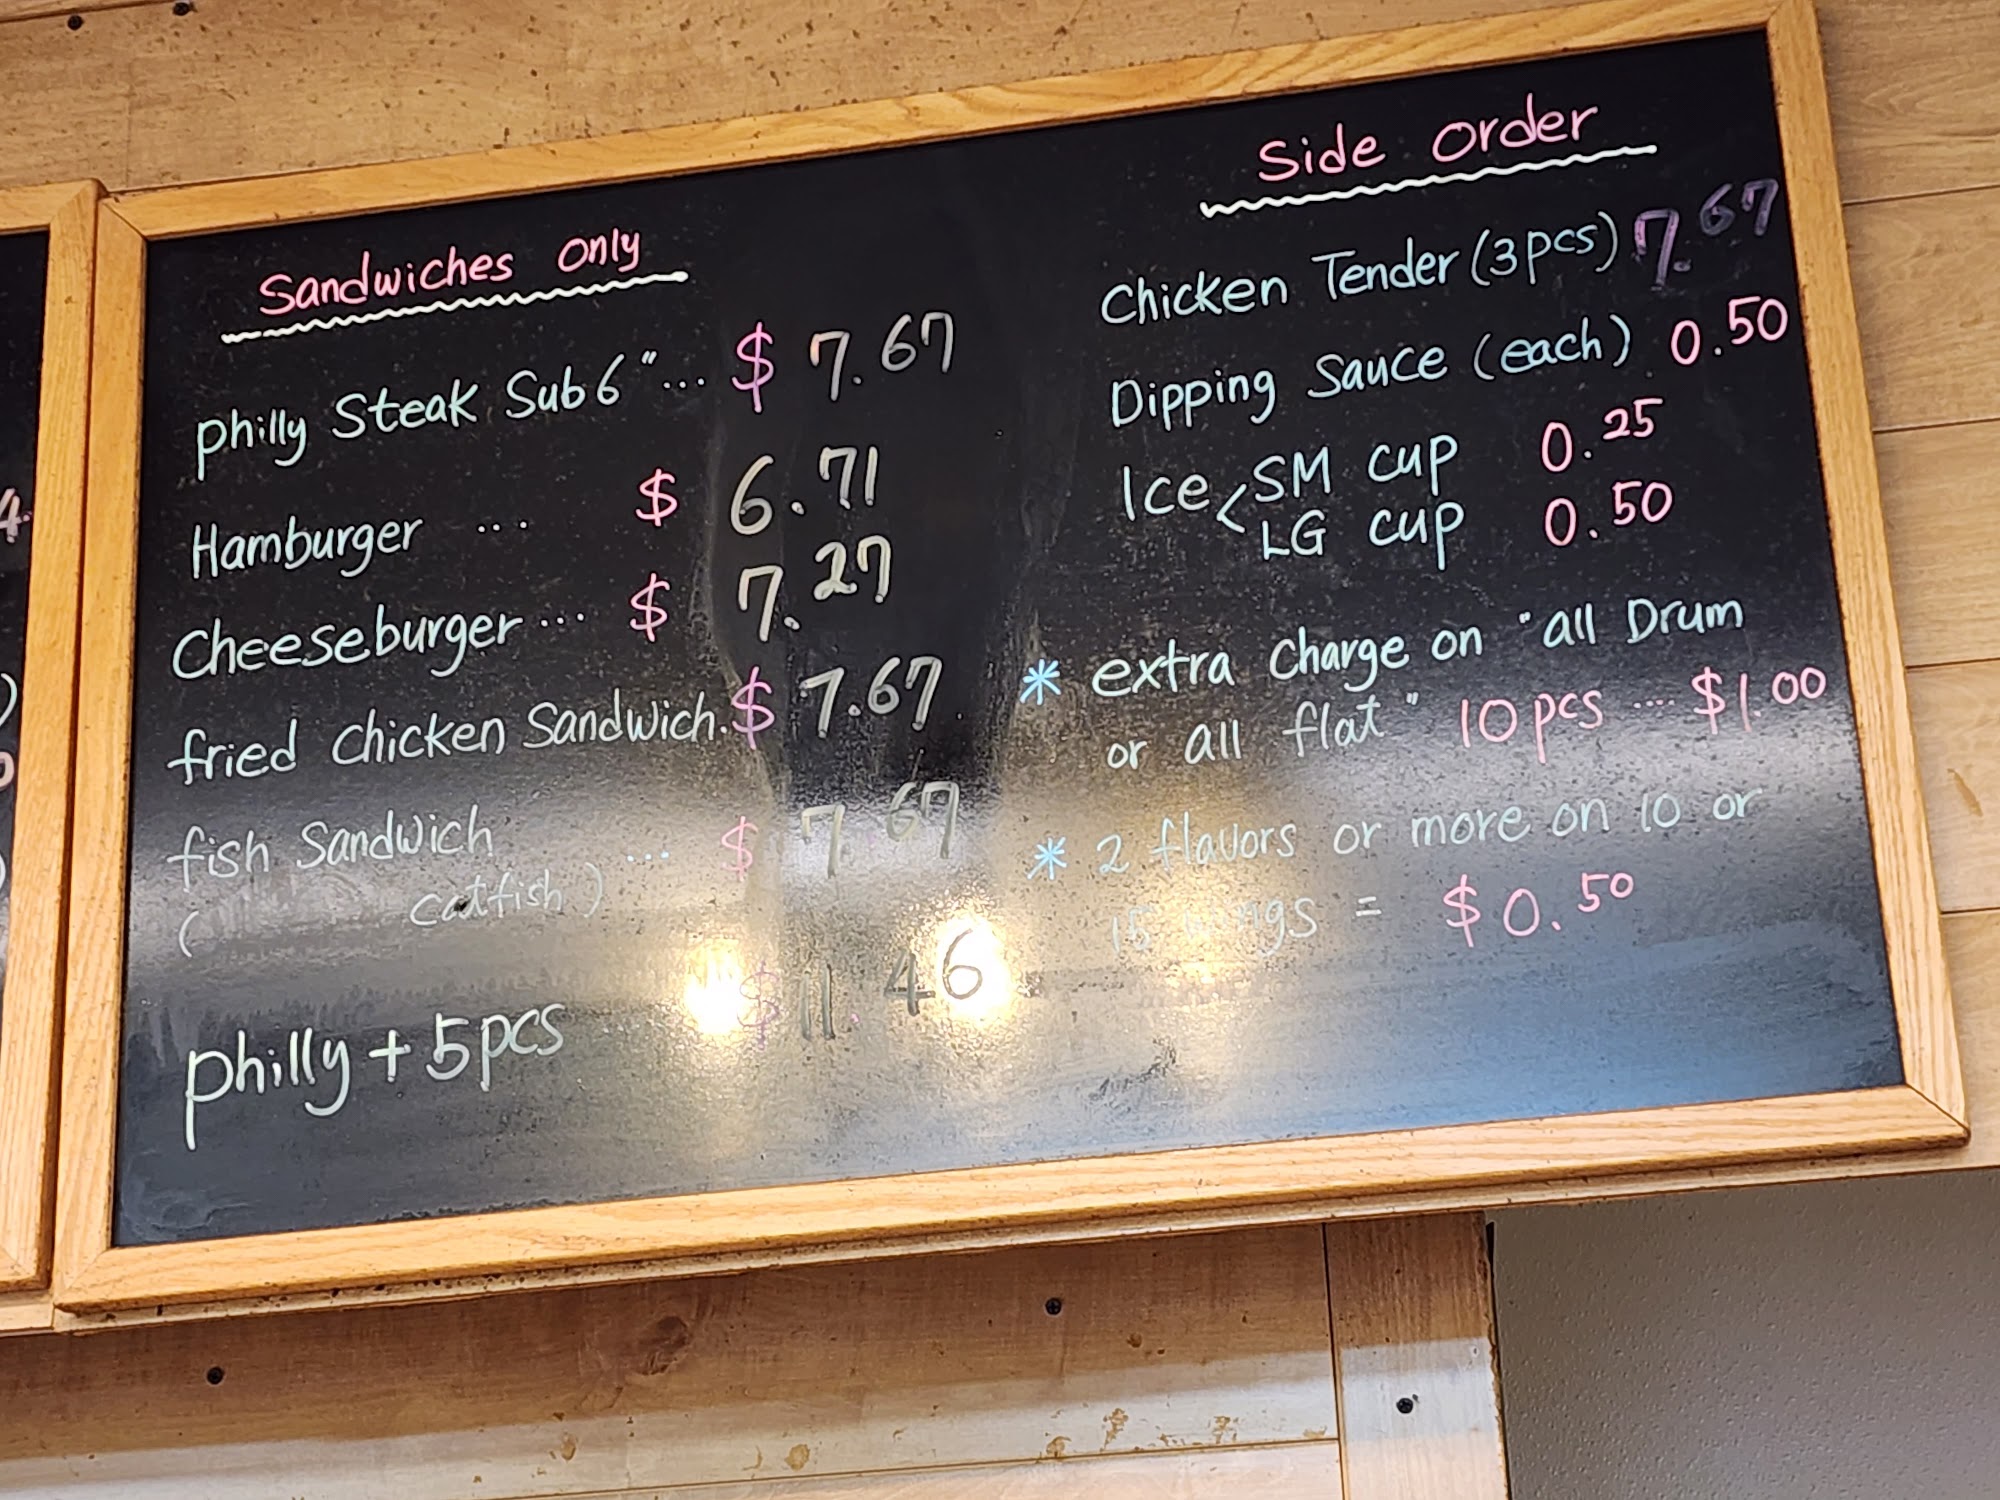 Sandwiches only
philly Steak Sub 6" ... $ 7.67
Hamburger ... $ 6.71
Cheeseburger ... $ 7.27
fried chicken Sandwich. $ 7.67
fish Sandwich ... $ 7.67
( catfish )
philly + 5pcs $ 11.46
Side order
Chicken Tender (3pcs) 7.67
Dipping Sauce (each) 0.50
Ice < SM cup 0.25
LG cup 0.50
* extra charge on "all Drum
or all flat" 10pcs .... $1.00
* 2 flavors or more on 10 or
15 wings = $0.50